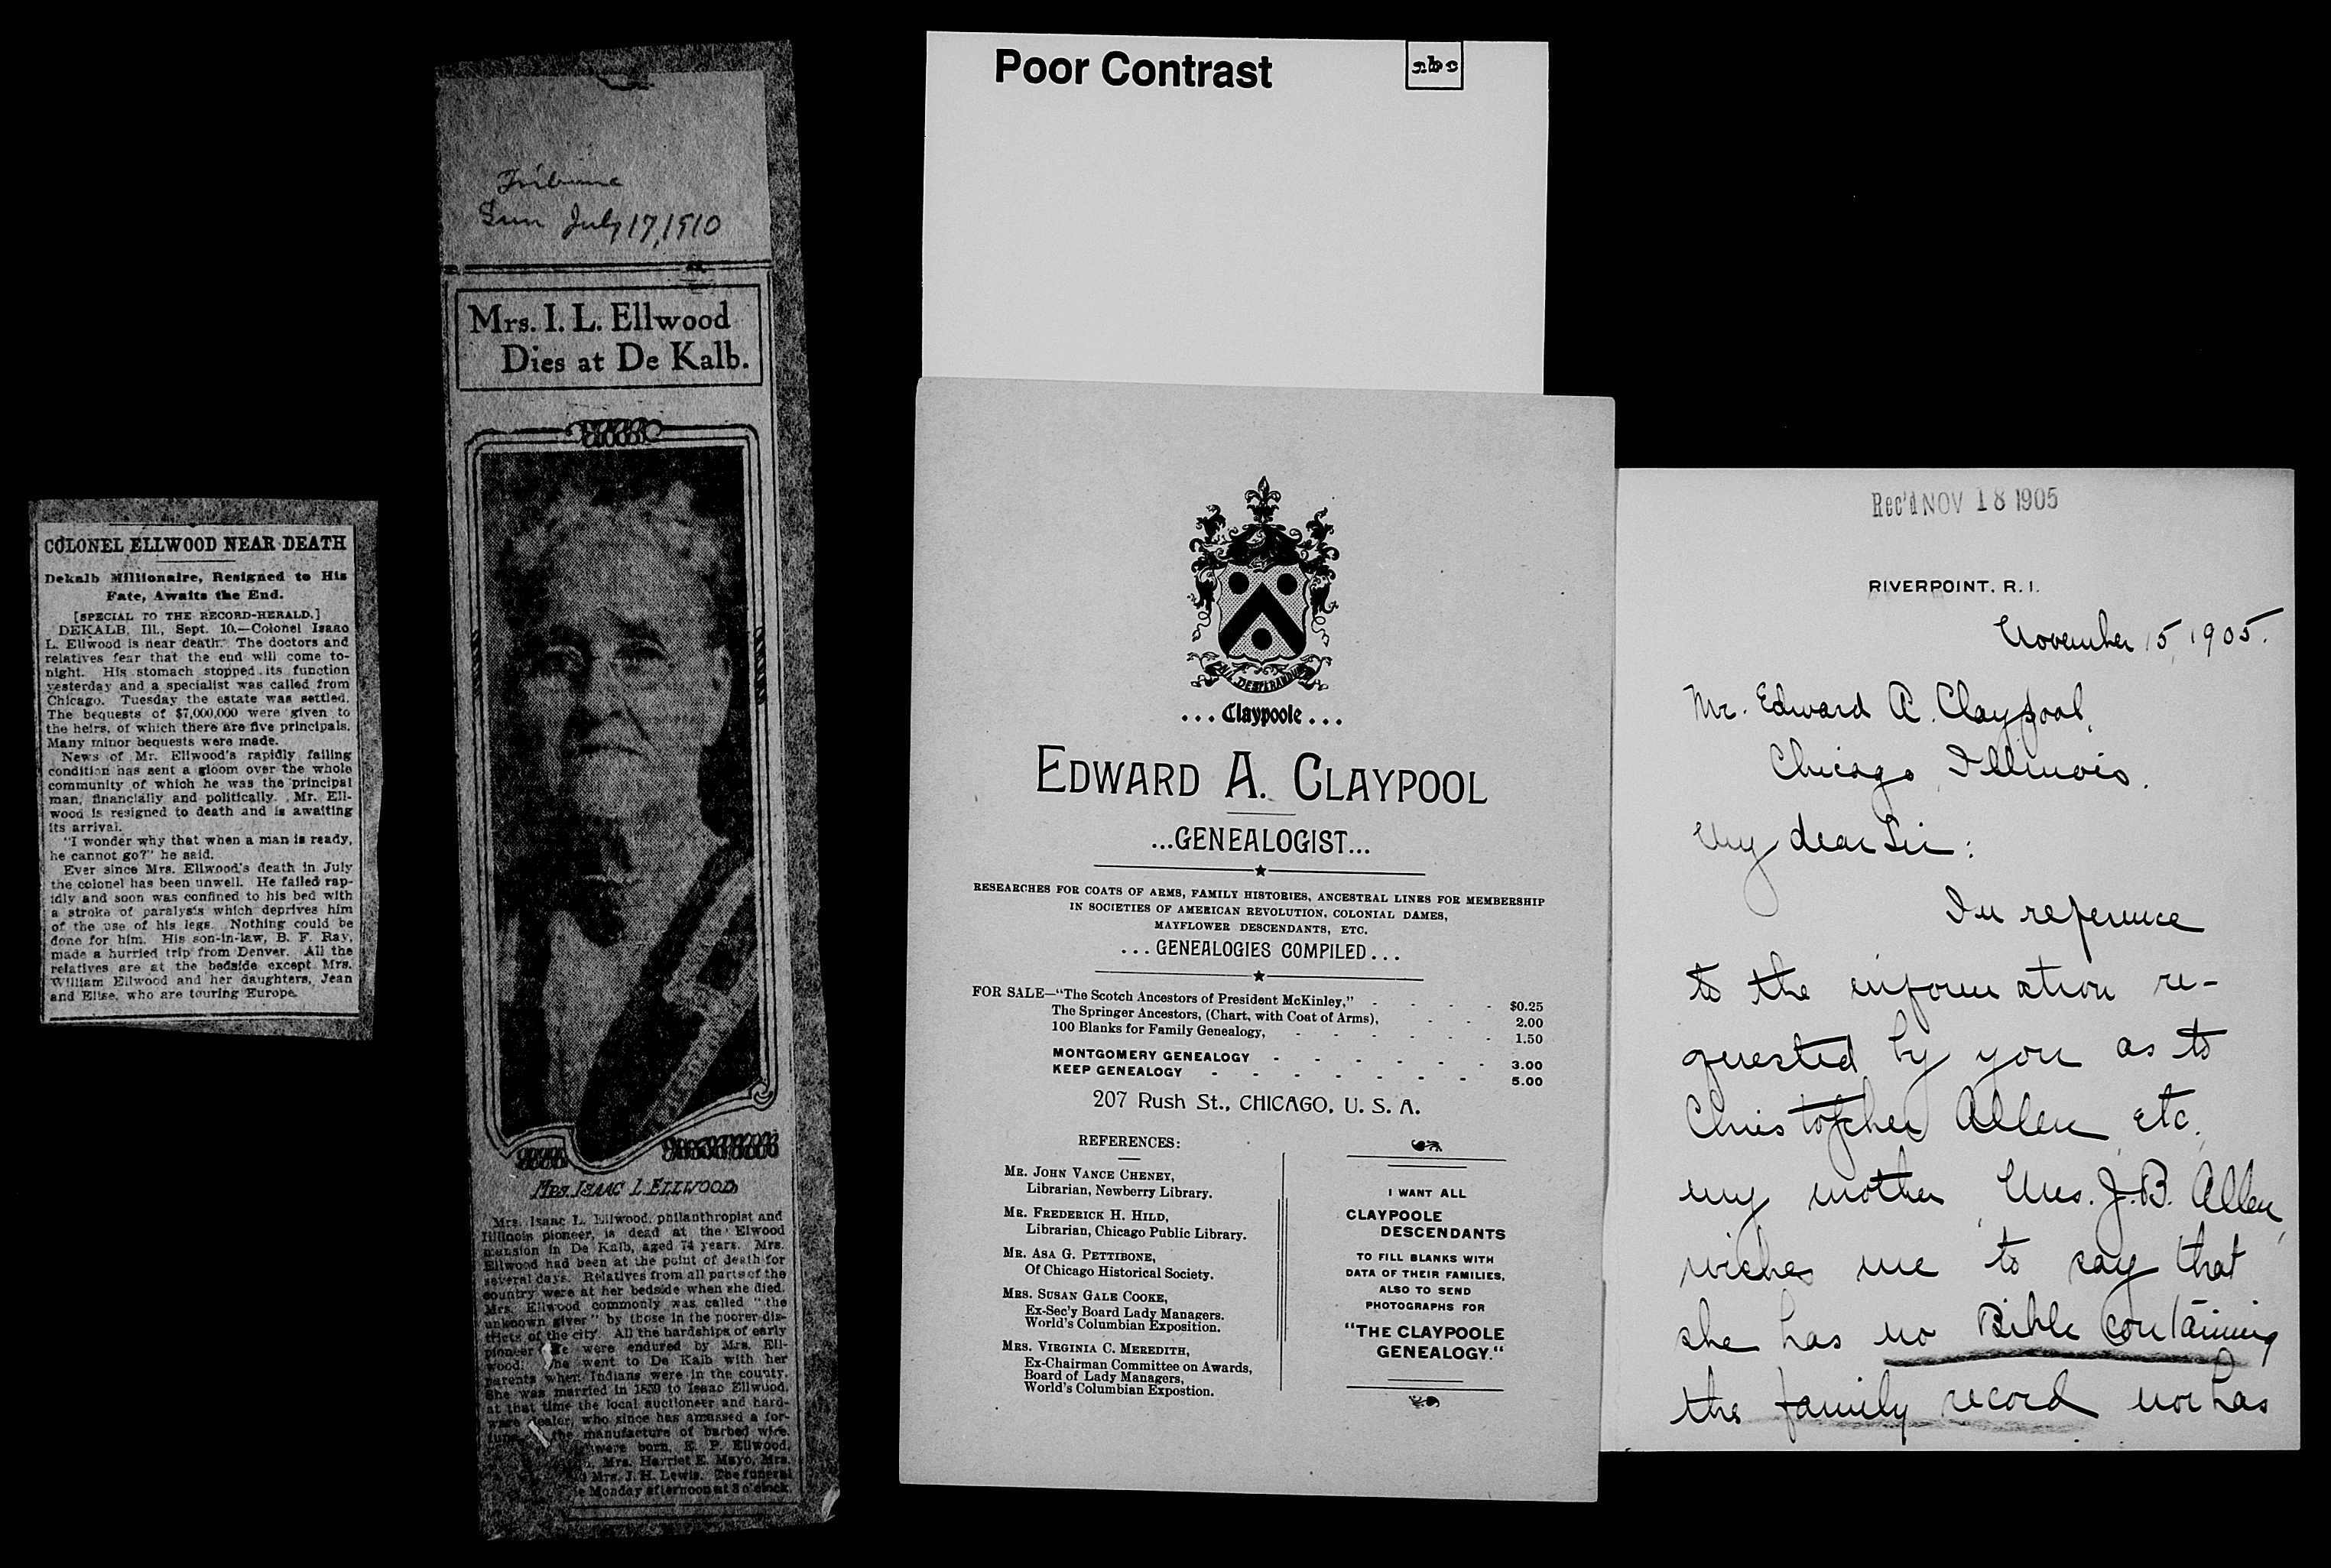 COLONEL ELLWOOD NEAR DEATH
Dekalb Millionaire, Resigned to His
Fate, Awaits the End.
[SPECIAL TO THE RECORD-HERALD.]
DEKALB, Ill., Sept. 10.—Colonel Isaac
L. Ellwood is near death. The doctors and
relatives fear that the end will come to-
night. His stomach stopped its function
yesterday and a specialist was called from
Chicago. Tuesday the estate was settled.
The bequests of $7,000,000 were given to
the heirs, of which there are five principals.
Many minor bequests were made.
News of Mr. Ellwood's rapidly failing
condition has sent a gloom over the whole
community of which he was the principal
man, financially and politically. Mr. Ell-
wood is resigned to death and is awaiting
its arrival.
"I wonder why that when a man is ready,
he cannot go?" he said.
Ever since Mrs. Ellwood's death in July
the colonel has been unwell. He failed rap-
idly and soon was confined to his bed with
a stroke of paralysis which deprives him
of the use of his legs. Nothing could be
done for him. His son-in-law, B. F. Ray,
made a hurried trip from Denver. All the
relatives are at the bedside except Mrs.
William Ellwood and her daughters, Jean
and Elise, who are touring Europe.
Tribune
Sun July 17, 1910
Mrs. I. L. Ellwood
Dies at De Kalb.
MRS. ISAAC L. ELLWOOD
Mrs. Isaac L. Ellwood, philanthropist and
Illinois pioneer, is dead at the Elwood
mansion in De Kalb, aged 74 years. Mrs.
Ellwood had been at the point of death for
several days. Relatives from all parts of the
country were at her bedside when she died.
Mrs. Ellwood commonly was called "the
unknown giver" by those in the poorer dis-
tricts of the city. All the hardships of early
pioneer were endured by Mrs. Ell-
wood. went to De Kalb with her
parents when Indians were in the county.
She was married in 1859 to Isaac Ellwood,
at that time the local auctioneer and hard-
ware dealer, who since has amassed a for-
the manufacture of barbed wire.
were born, E. P. Ellwood,
Mrs. Harriet E. Mayo, Mrs.
Mrs. J. H. Lewis. The funeral
Monday afternoon at 3 o'clock.
Poor Contrast
abc
NIL DESPERANDUM
... Claypoole ...
EDWARD A. CLAYPOOL
...GENEALOGIST...
RESEARCHES FOR COATS OF ARMS, FAMILY HISTORIES, ANCESTRAL LINES FOR MEMBERSHIP
IN SOCIETIES OF AMERICAN REVOLUTION, COLONIAL DAMES,
MAYFLOWER DESCENDANTS, ETC.
... GENEALOGIES COMPILED ...
FOR SALE—"The Scotch Ancestors of President McKinley," - - - - $0.25
The Springer Ancestors, (Chart, with Coat of Arms), - - 2.00
100 Blanks for Family Genealogy, - - - - - - 1.50
MONTGOMERY GENEALOGY - - - - - - 3.00
KEEP GENEALOGY - - - - - - - 5.00
207 Rush St., CHICAGO, U. S. A.
REFERENCES:
MR. JOHN VANCE CHENEY,
Librarian, Newberry Library.
MR. FREDERICK H. HILD,
Librarian, Chicago Public Library.
MR. ASA G. PETTIBONE,
Of Chicago Historical Society.
MRS. SUSAN GALE COOKE,
Ex-Sec'y Board Lady Managers.
World's Columbian Exposition.
MRS. VIRGINIA C. MEREDITH,
Ex-Chairman Committee on Awards,
Board of Lady Managers,
World's Columbian Expostion.
I WANT ALL
CLAYPOOLE
DESCENDANTS
TO FILL BLANKS WITH
DATA OF THEIR FAMILIES,
ALSO TO SEND
PHOTOGRAPHS FOR
"THE CLAYPOOLE
GENEALOGY."
Rec'd NOV 18 1905
RIVERPOINT, R. I.
November 15, 1905.
Mr. Edward A. Claypool,
Chicago, Illinois.
My dear Sir:
In reference
to the information re-
quested by you as to
Christopher Allen etc.
my mother, Mrs. J. B. Allen,
wishes me to say that
she has no Bible containing
the family record nor has